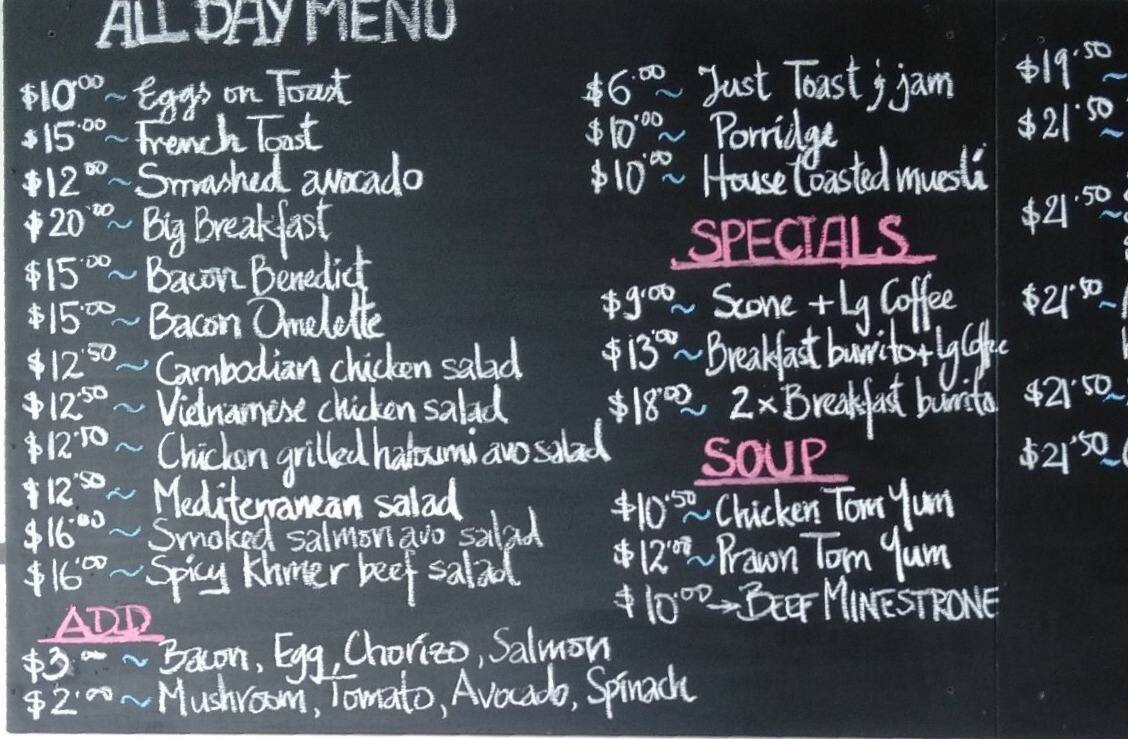 ALL DAY MENU
$10.00 ~ Eggs on Toast
$15.00 ~ French Toast
$12.00 ~ Smashed avocado
$20.00 ~ Big Breakfast
$15.00 ~ Bacon Benedict
$15.00 ~ Bacon Omelette
$12.50 ~ Cambodian chicken salad
$12.50 ~ Vietnamese chicken salad
$12.50 ~ Chicken grilled haloumi avo salad
$12.50 ~ Mediterranean salad
$16.00 ~ Smoked salmon avo salad
$16.00 ~ Spicy Khmer beef salad
ADD
$3.00 ~ Bacon, Egg, Chorizo, Salmon
$2.00 ~ Mushroom, Tomato, Avocado, Spinach
$6.00 ~ Just Toast & jam
$10.00 ~ Porridge
$10.00 ~ House toasted muesli
SPECIALS
$9.00 ~ Scone + Lg Coffee
$13.00 ~ Breakfast burrito + Lg Coffee
$18.00 ~ 2 x Breakfast burrito
SOUP
$10.50 ~ Chicken Tom Yum
$12.00 ~ Prawn Tom Yum
$10.00 → BEEF MINESTRONE
$19.50 ~
$21.50 ~
$21.50 ~
$21.50 ~
$21.50 ~
$21.50 ~